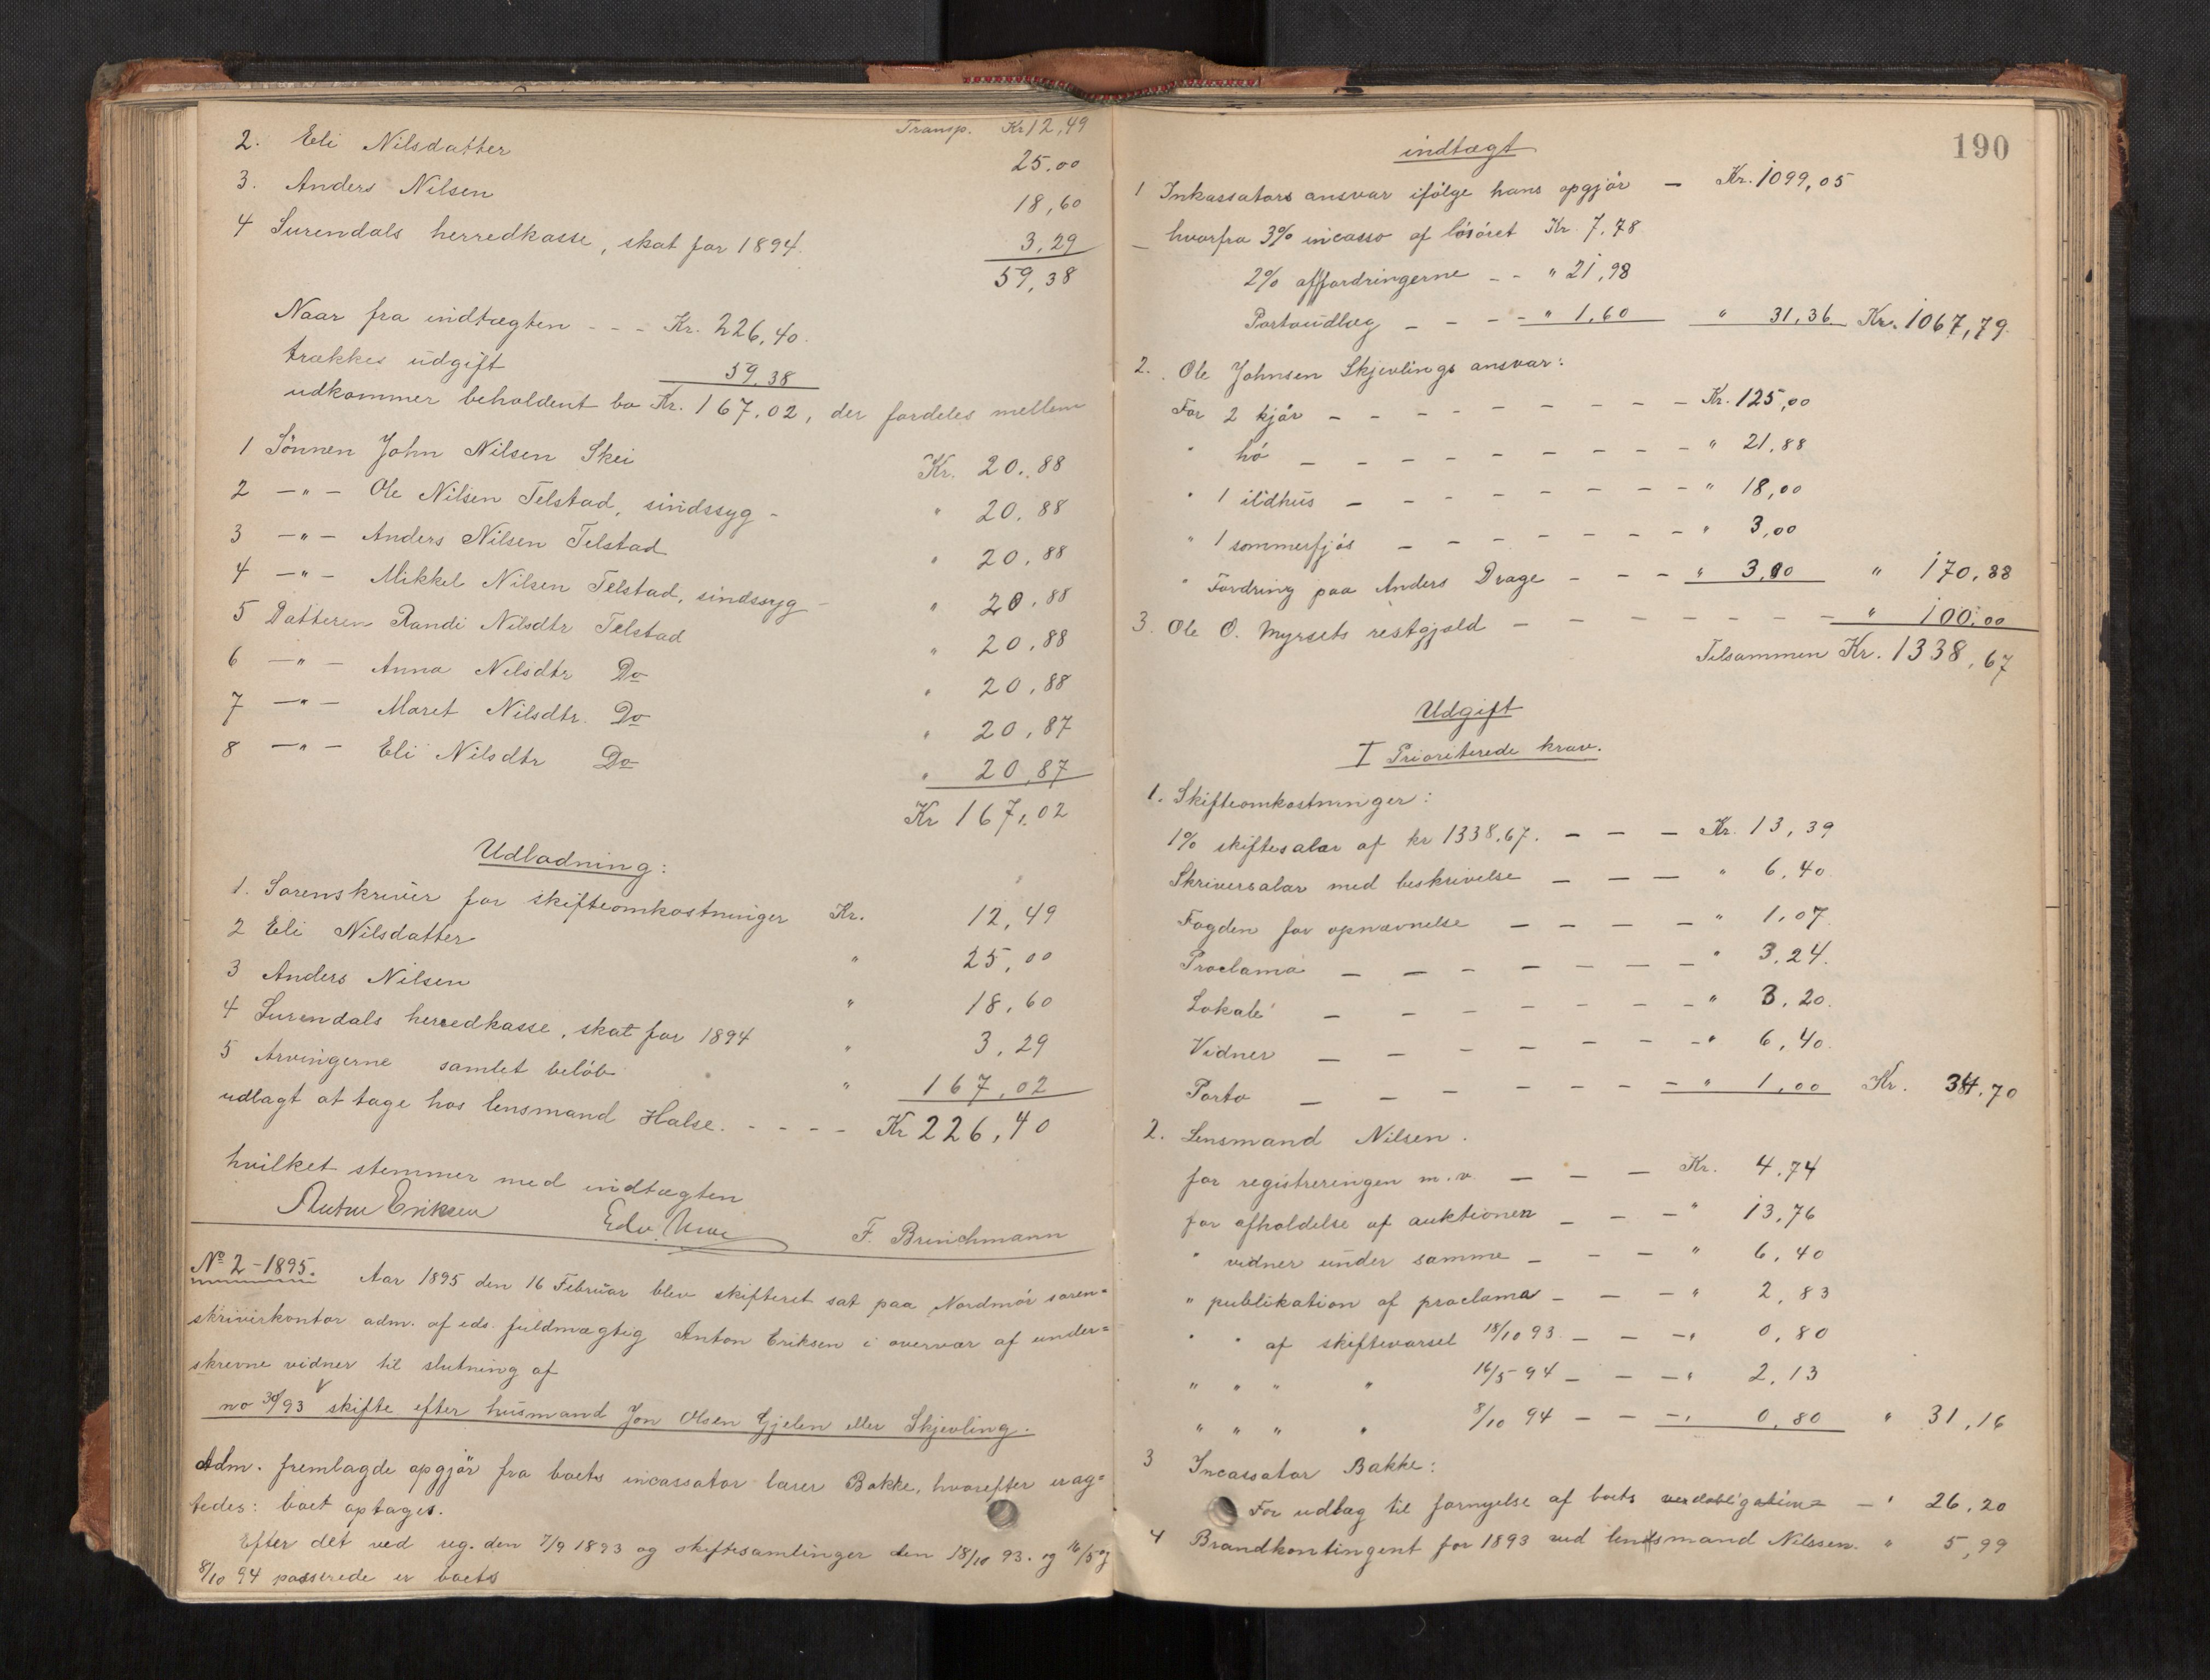 Transp. Kr 12,49
2. Eli Nilsdatter 25.00
3. Anders Nilsen 18,60
4 Surendals herredkasse, skat for 1894. 3,29
59,38
Naar fra indtægten - - - Kr. 226,40.
trækkes udgift 59.38
udkommer beholdent bo Kr. 167.02, der fordeles mellem
1 Sønnen John Nilsen Skei Kr. 20.88
2 —"— Ole Nilsen Telstad, sindssyg - " 20.88
3 —"— Anders Nilsen Telstad " 20.88
4 —"— Mikkel Nilsen Telstad, sindssyg - " 20.88
5 Datteren Randi Nilsdtr Telstad " 20.88
6 —"— Anna Nilsdtr Do " 20.88
7 —"— Maret Nilsdtr. Do " 20.87
8 —"— Eli Nilsdtr Do " 20.87
Kr 167.02
Udlodning:
1. Sorenskriver for skifteomkostninger Kr. 12,49
2 Eli Nilsdatter " 25,00
3 Anders Nilsen " 18,60
4 Surendals herredkasse, skat for 1894 " 3,29
5 Arvingerne samlet beløb " 167,02
udlagt at tage hos lensmand Halse. - - - - Kr 226,40
hvilket stemmer med indtægten
Anton Eriksen Edv. F. Brinchmann
No 2 - 1895. Aar 1895 den 16 Februar blev skifteret sat paa Nordmør soren=
skriverkontor adm. af eds. fuldmægtig Anton Eriksen i overvær af under=
skrevne vidner til slutning af
no 30/93 skifte efter husmand Jon Olsen Gjelen eller Skjevling.
Adm. fremlagde opgjør fra boets incassator lærer Bakke, hvorefter erag=
tedes: boet optages.
Efter det ved reg. den 7/9 1893 og skiftesamlinger den 18/10 93. og 16/5 og
8/10 94 passerede er boets
190
indtægt
1 Inkassators ansvar ifølge hans opgjør — Kr. 1099,05
— hvorfra 3% incasso af løsøret Kr. 7.78
2% af fordringerne - - " 21,98
Portoudlæg - - - - " 1,60 " 31,36 Kr. 1067,79.
2. Ole Johnsen Skjevlings ansvar:
For 2 kjør - - - - - - - - Kr. 125,00
" hø - - - - - - - - " 21.88
" 1 ildhus - - - - - - - " 18,00
" 1 sommerfjøs - - - - - - " 3,00
" Fordring paa Anders Drage - - - " 3.00 " 170,88
3. Ole O. Myrsets restgjæld - - - - - - - " 100,00
Tilsammen Kr. 1338,67
Udgift
I Prioriterede krav.
1. Skifteomkostninger:
1% skiftesalær af kr 1338.67. - - - Kr. 13,39
Skriversalær med beskrivelse - - - " 6.40
Fogden for opnævnelse - - - - " 1,07.
Proclama - - - - - - - " 3,24.
Lokale - - - - - - - " 3,20.
Vidner - - - - - - - " 6,40.
Porto - - - - - - - " 1,00 Kr. 34.70
2. Lensmand Nilsen.
for registreringen m.v. - - - Kr. 4.74
for afholdelse af auktionen - - - " 13,76
" vidner under samme - - - " 6,40
" publikation af proclama - - - " 2,83
" " af skiftevarsel 18/10 93. - - - " 0,80
" " " " 16/5 94 - - - " 2.13
" " " " 8/10 94 - - - " 0,80 " 31,16
3 Incassator Bakke:
For udlæg til fornyelse af boets - " 26,20
4 Brandkontingent for 1893 ved lensmand Nilssen. " 5,99